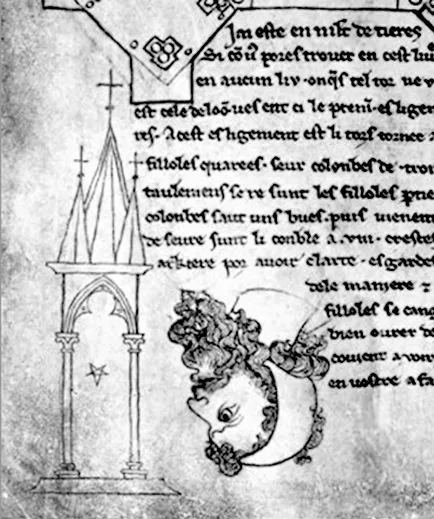 Jai este en mlt de tieres
Si cõ v pores trover en cest liv
en aucun liv · onq̃s tel tor ne v
est cele de loõ · ves ent ci le prem · esligem
res · A cest esligement est li tors tornee a
filloles quarees · seur colonbes de · troi
taulemens se re sunt les filloles ptie
colonbes saut uns bues · puis vienent
de seure sunt li conble a · viii · creste
arkiere por avoir clarte · esgarde
de le maniere ⁊
filloles se cang
bien ovrer de
covient avoir
en vostre afa